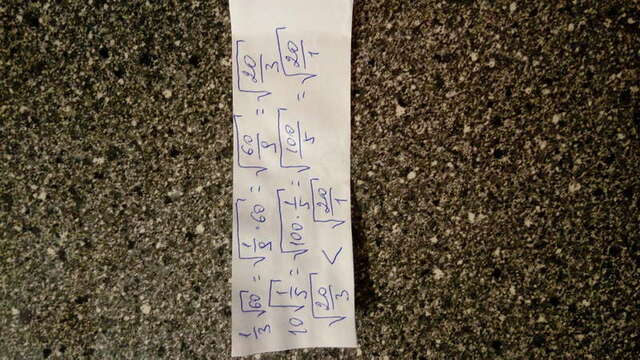 1/3 √60 = √(1/9 · 60) = √(60/9) = √(20/3)
10 √(1/5) = √(100 · 1/5) = √(100/5) = √(20/1)
√(20/3) < √(20/1)